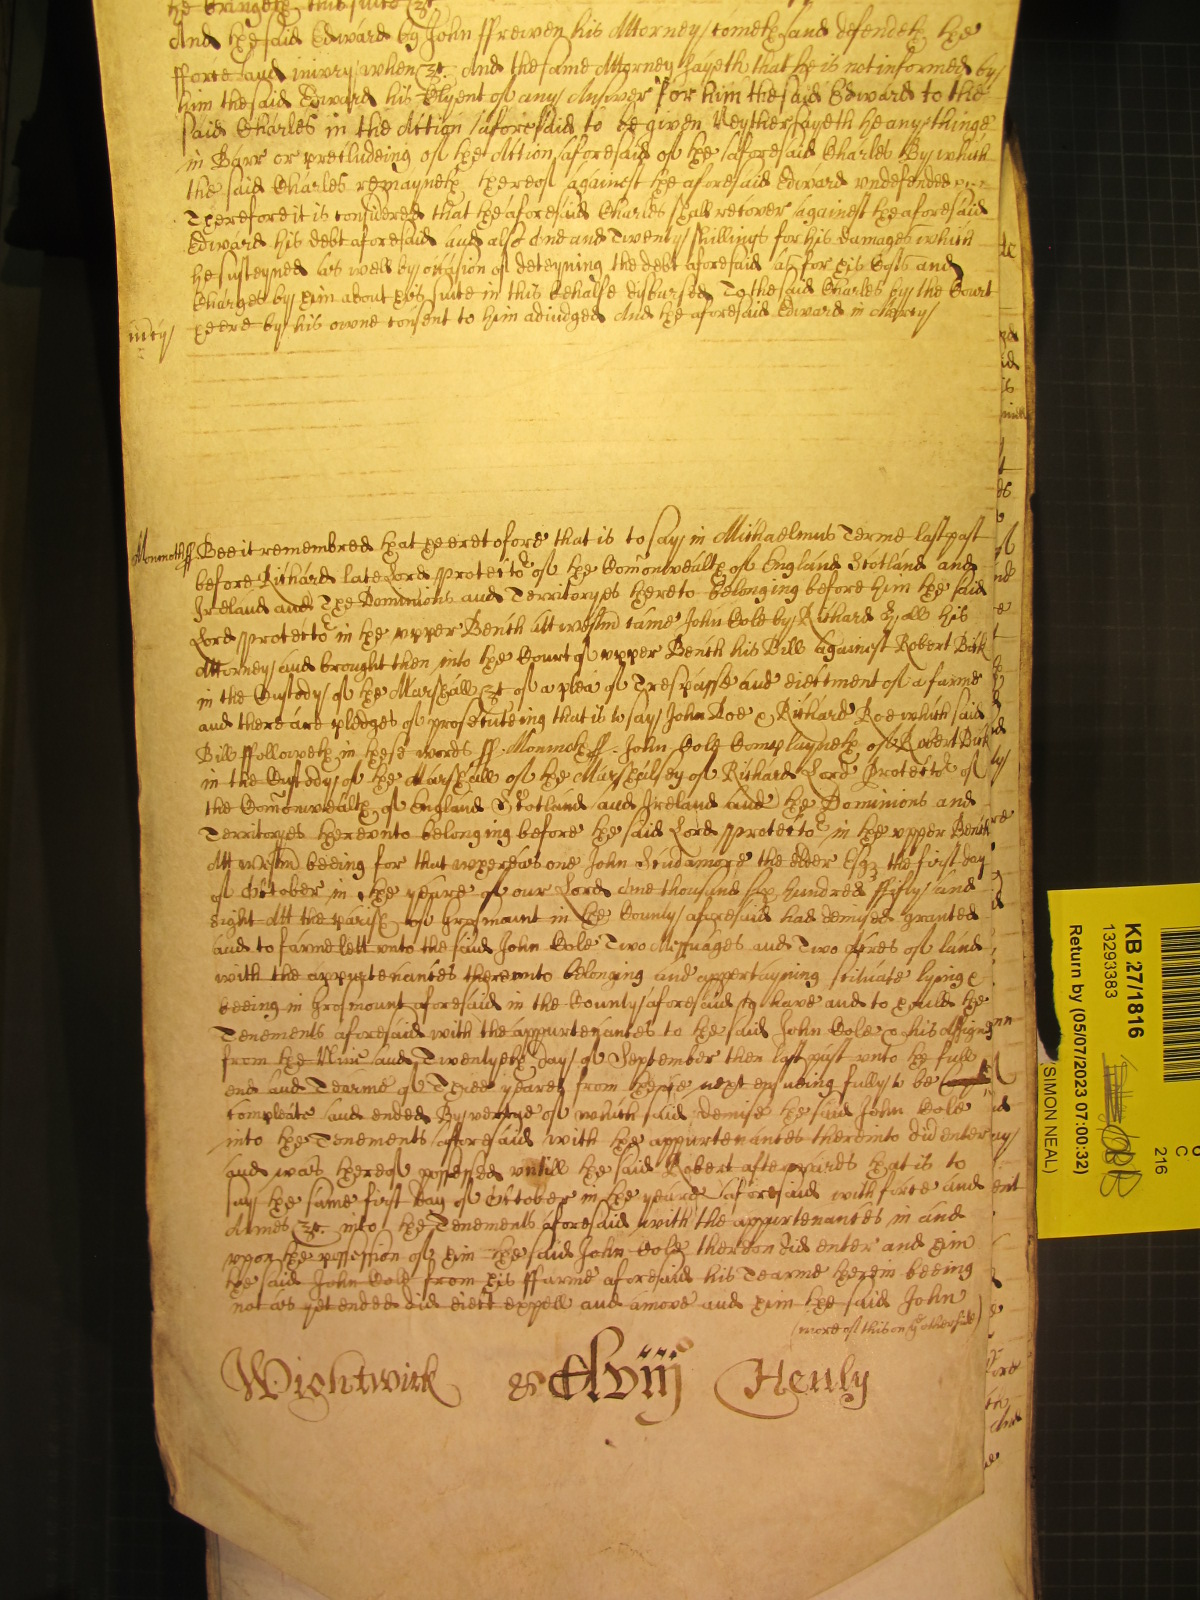 he bringeth this suite &c
And the said Edward by John ffrewen his Attorney cometh and defendeth the
fforce and iniury when &c And the same Attorney sayeth that he is not informed by
him the said Edward his Clyent of any Answer for him the said Edward to the
said Charles in the Action aforesaid to be given Neyther sayeth he any thinge
in Barr or precludeing of the Action aforesaid of the aforesaid Charles By which
the said Charles remayneth thereof against the aforesaid Edward vndefended
Therefore it is considered that the aforesaid Charles shall recover against the aforesaid
Edward his debt aforesaid and also One and Twenty shillings for his damages which
he susteyned as well by occasion of deteyning the debt aforesaid as for his Costs and
Charges by him about his suite in this behalfe disbursed To the said Charles by the Court
heere by his owne consent to him adiudged And the aforesaid Edward in Mercy
mcy
Monmoth ss Bee it remembred that heeretofore that is to say in Michaelmas Terme last past
before Richard late Lord Protector of the Comonwealth of England Scotland and
Ireland and The Dominions and Territoryes thereto belonging before him the said
Lord Protector in the vpper Bench Att Westm came John Cole by Richard Hall his
Attorney and brought then into the Court of vpper Bench his Bill against Robert Bick
in the Custody of the Marshall &c of a plea of Trespasse and eiectment of a farme
and there are pledges of prosecuteing that is to say John Doe & Richard Roe which said
Bill ffolloweth in these words ss Monmoth ss John Cole Complayneth of Robert Bick
in the Custody of the Marshall of the Marshalsey of Richard Lord Protector of
the Comonwealth of England Scotland and Ireland and the Dominions and
Territoryes therevnto belonging before the said Lord Protector in the vpper Bench
Att Westm beeing for that whereas one John Scudamore the elder Esqr the first day
of October in the yeare of our Lord One thousand six hundred ffifty and
Eight Att the parish of Grosmount in the County aforesaid had demised granted
and to farme lett vnto the said John Cole Two Messuages and Two Acres of land
with the appurtenances therevnto belonging and appertayning scituate lying &
beeing in Grosmount aforesaid in the County aforesaid to have and to hould the
Tenements aforesaid with the appurtenances to the said John Cole & his Assignes
from the Nine and Twentyeth day of September then last past vnto the full
end and Tearme of Three yeares from thence next ensueing fully to be
compleate and ended By vertue of which said demise the said John Cole
into the Tenements afforesaid with the appurtenances thereinto did enter
and was thereof possessed vntill the said Robert afterwards that is to
say the same first day of October in the yeare aforesaid with force and
Armes &c into the Tenements aforesaid with the appurtenances in and
vpon the possession of him the said John Cole thereon did enter and him
the said John Cole from his ffarme aforesaid his Tearme therein beeing
not as yet ended did eiect expell and amove and him the said John
(more of this on ye other side)
Wightwick Henly
KB 27/1816
13293383
Return by (05/07/2023 07:00:32)
(SIMON NEAL)
216
C